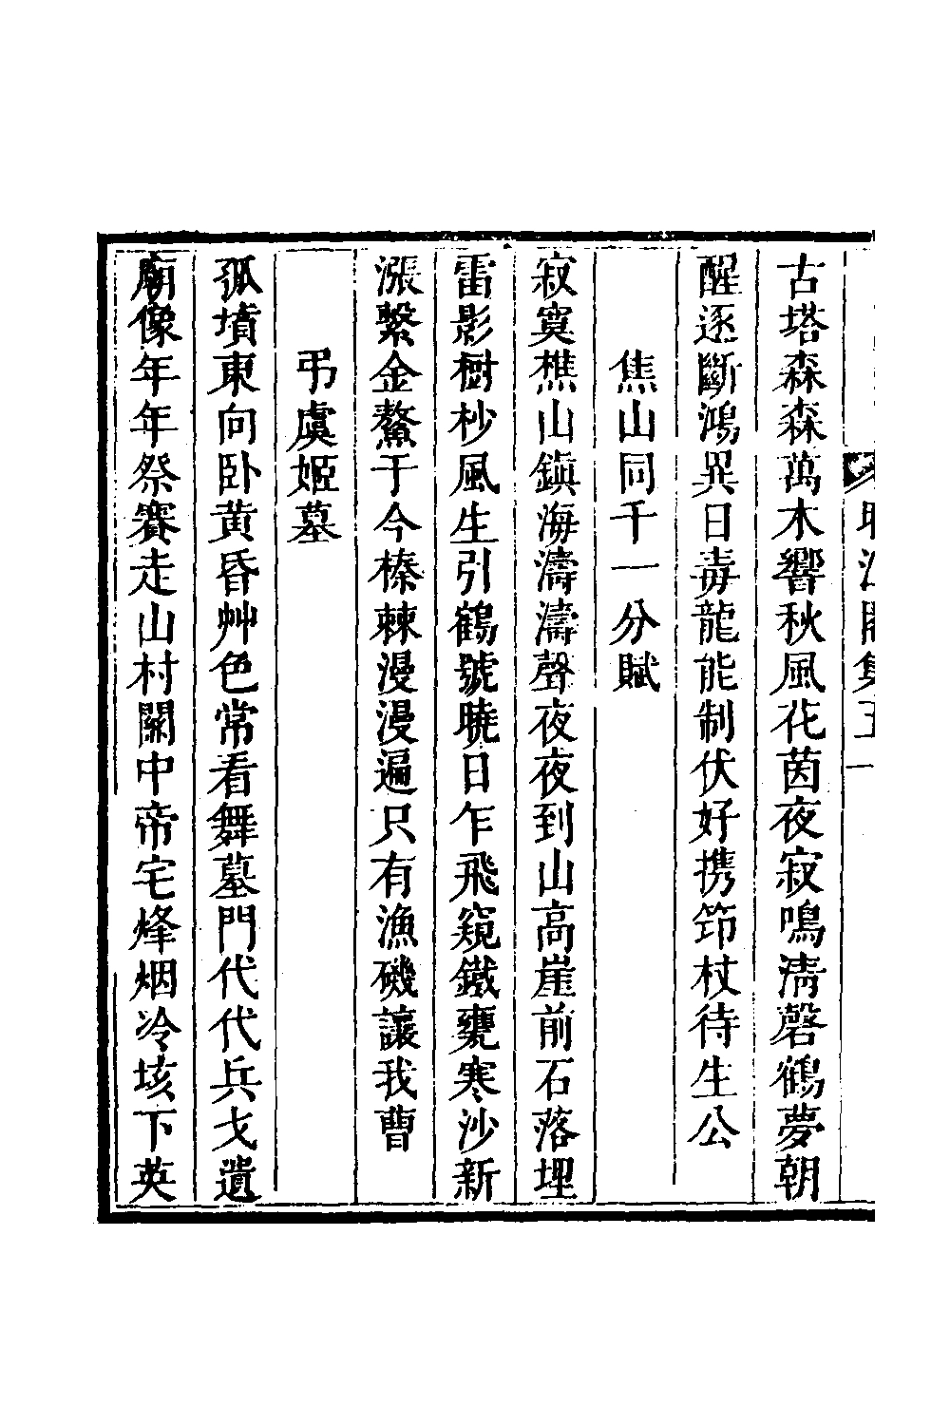 古塔森森萬木響秋風花茵夜寂鳴清磬鶴夢朝
醒逐斷鴻異日毒龍能制伏好携筇杖待生公
焦山同千一分賦
寂寞樵山鎭海濤濤聲夜夜到山高崖前石落埋
雷影樹杪風生引鶴號曉日乍飛窺鐵甕寒沙新
漲繫金鰲于今榛棘漫漫遍只有漁磯讓我曹
弔虞姬墓
孤墳東向卧黄昏艸色常看舞墓門代代兵戈遺
廟像年年祭賽走山村關中帝宅烽烟冷垓下英